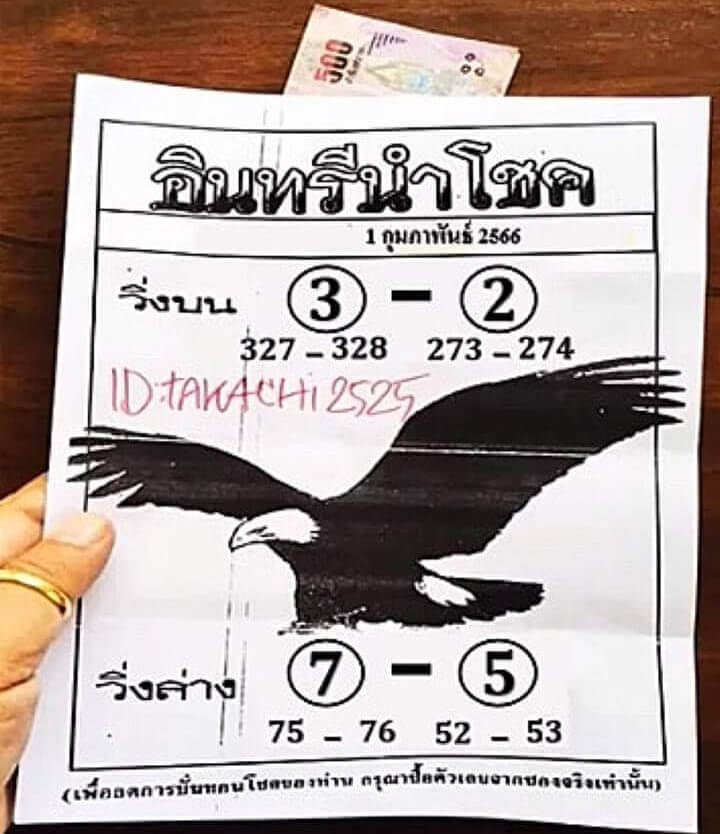 500
อินทรีนำโชค
1 กุมภาพันธ์ 2566
วิ่งบน 3 - 2
327 - 328 273 - 274
ID:tAKACHi2525
วิ่งล่าง 7 - 5
75 - 76 52 - 53
(เพื่อลดการบั่นทอนโชคของท่าน กรุณาซื้อตัวเลขจากซองจริงเท่านั้น)